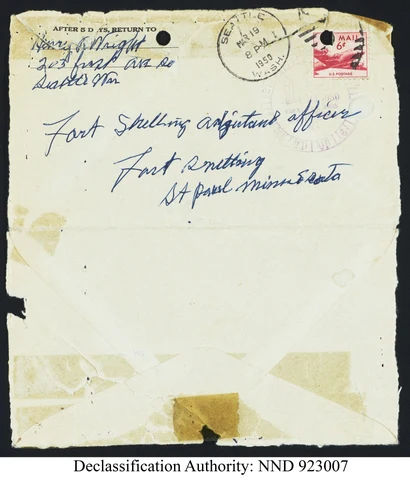 AFTER 5 DAYS, RETURN TO
Harry R Wright
203 first ave so
Seattle Wn
SEATTLE
MAR 19
8 PM
1950
WASH.
MAIL
6¢
U.S. POSTAGE
Fort Snelling Adjutant officer
Fort Snelling
St Paul Minnesota
Declassification Authority: NND 923007